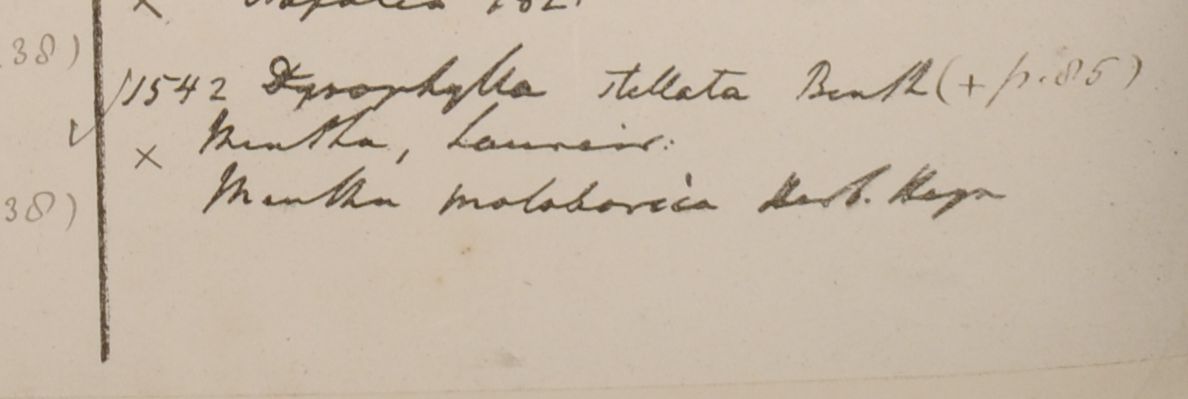 × Napalia 182.
38)
1542 Dysophylla stellata Benth (+ p. 85)
× Mentha, Loureir:
38)
Mentha malabarica Herb. Heyn